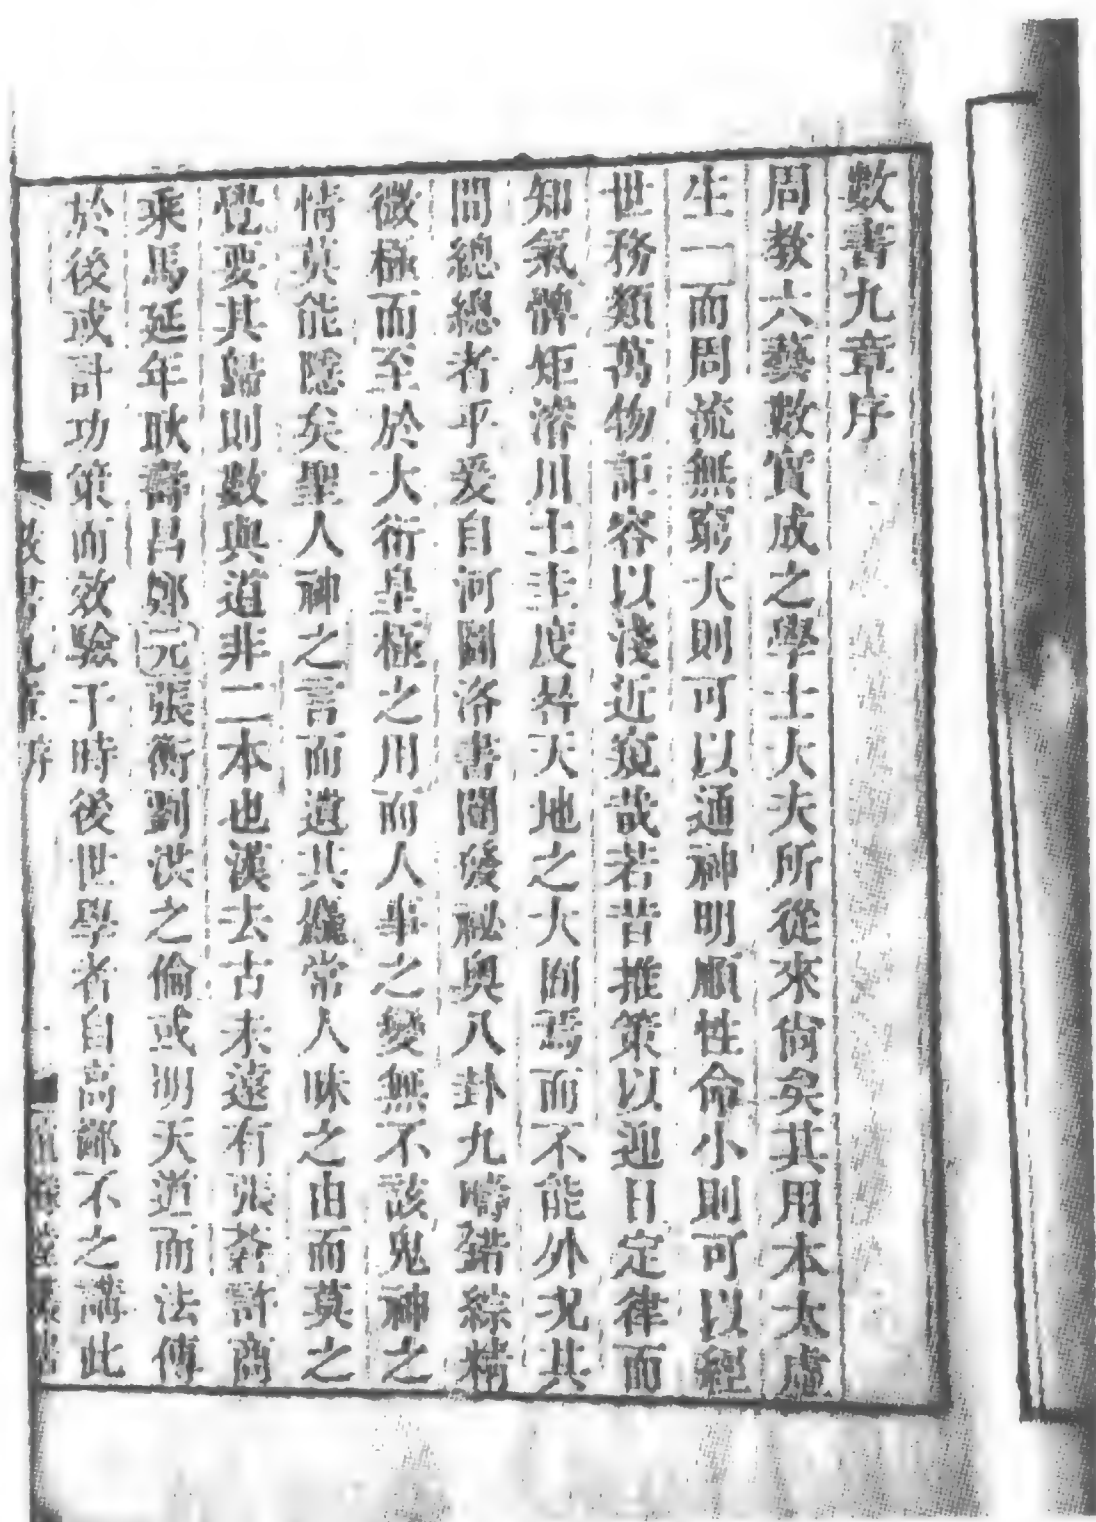 數書九章序
周教六藝數實成之學士大夫所從來尙矣其用本太虛
生一而周流無窮大則可以通神明順性命小則可以經
世務類萬物詎容以淺近窺哉若昔推策以迎日定律而
知氣髀矩濬川土圭度晷天地之大囿焉而不能外况其
間總總者乎爰自河圖洛書闓發祕奥八卦九疇錯綜精
微極而至於大衍皇極之用而人事之變無不該鬼神之
情莫能隱矣聖人神之言而遺其麤常人昧之由而莫之
覺要其歸則數與道非二本也漢去古未遠有張蒼許商
乘馬延年耿壽昌鄭元張衡劉洪之倫或明天道而法傳
於後或計功策而效驗于時後世學者自高鄙不之講此
數書九章序